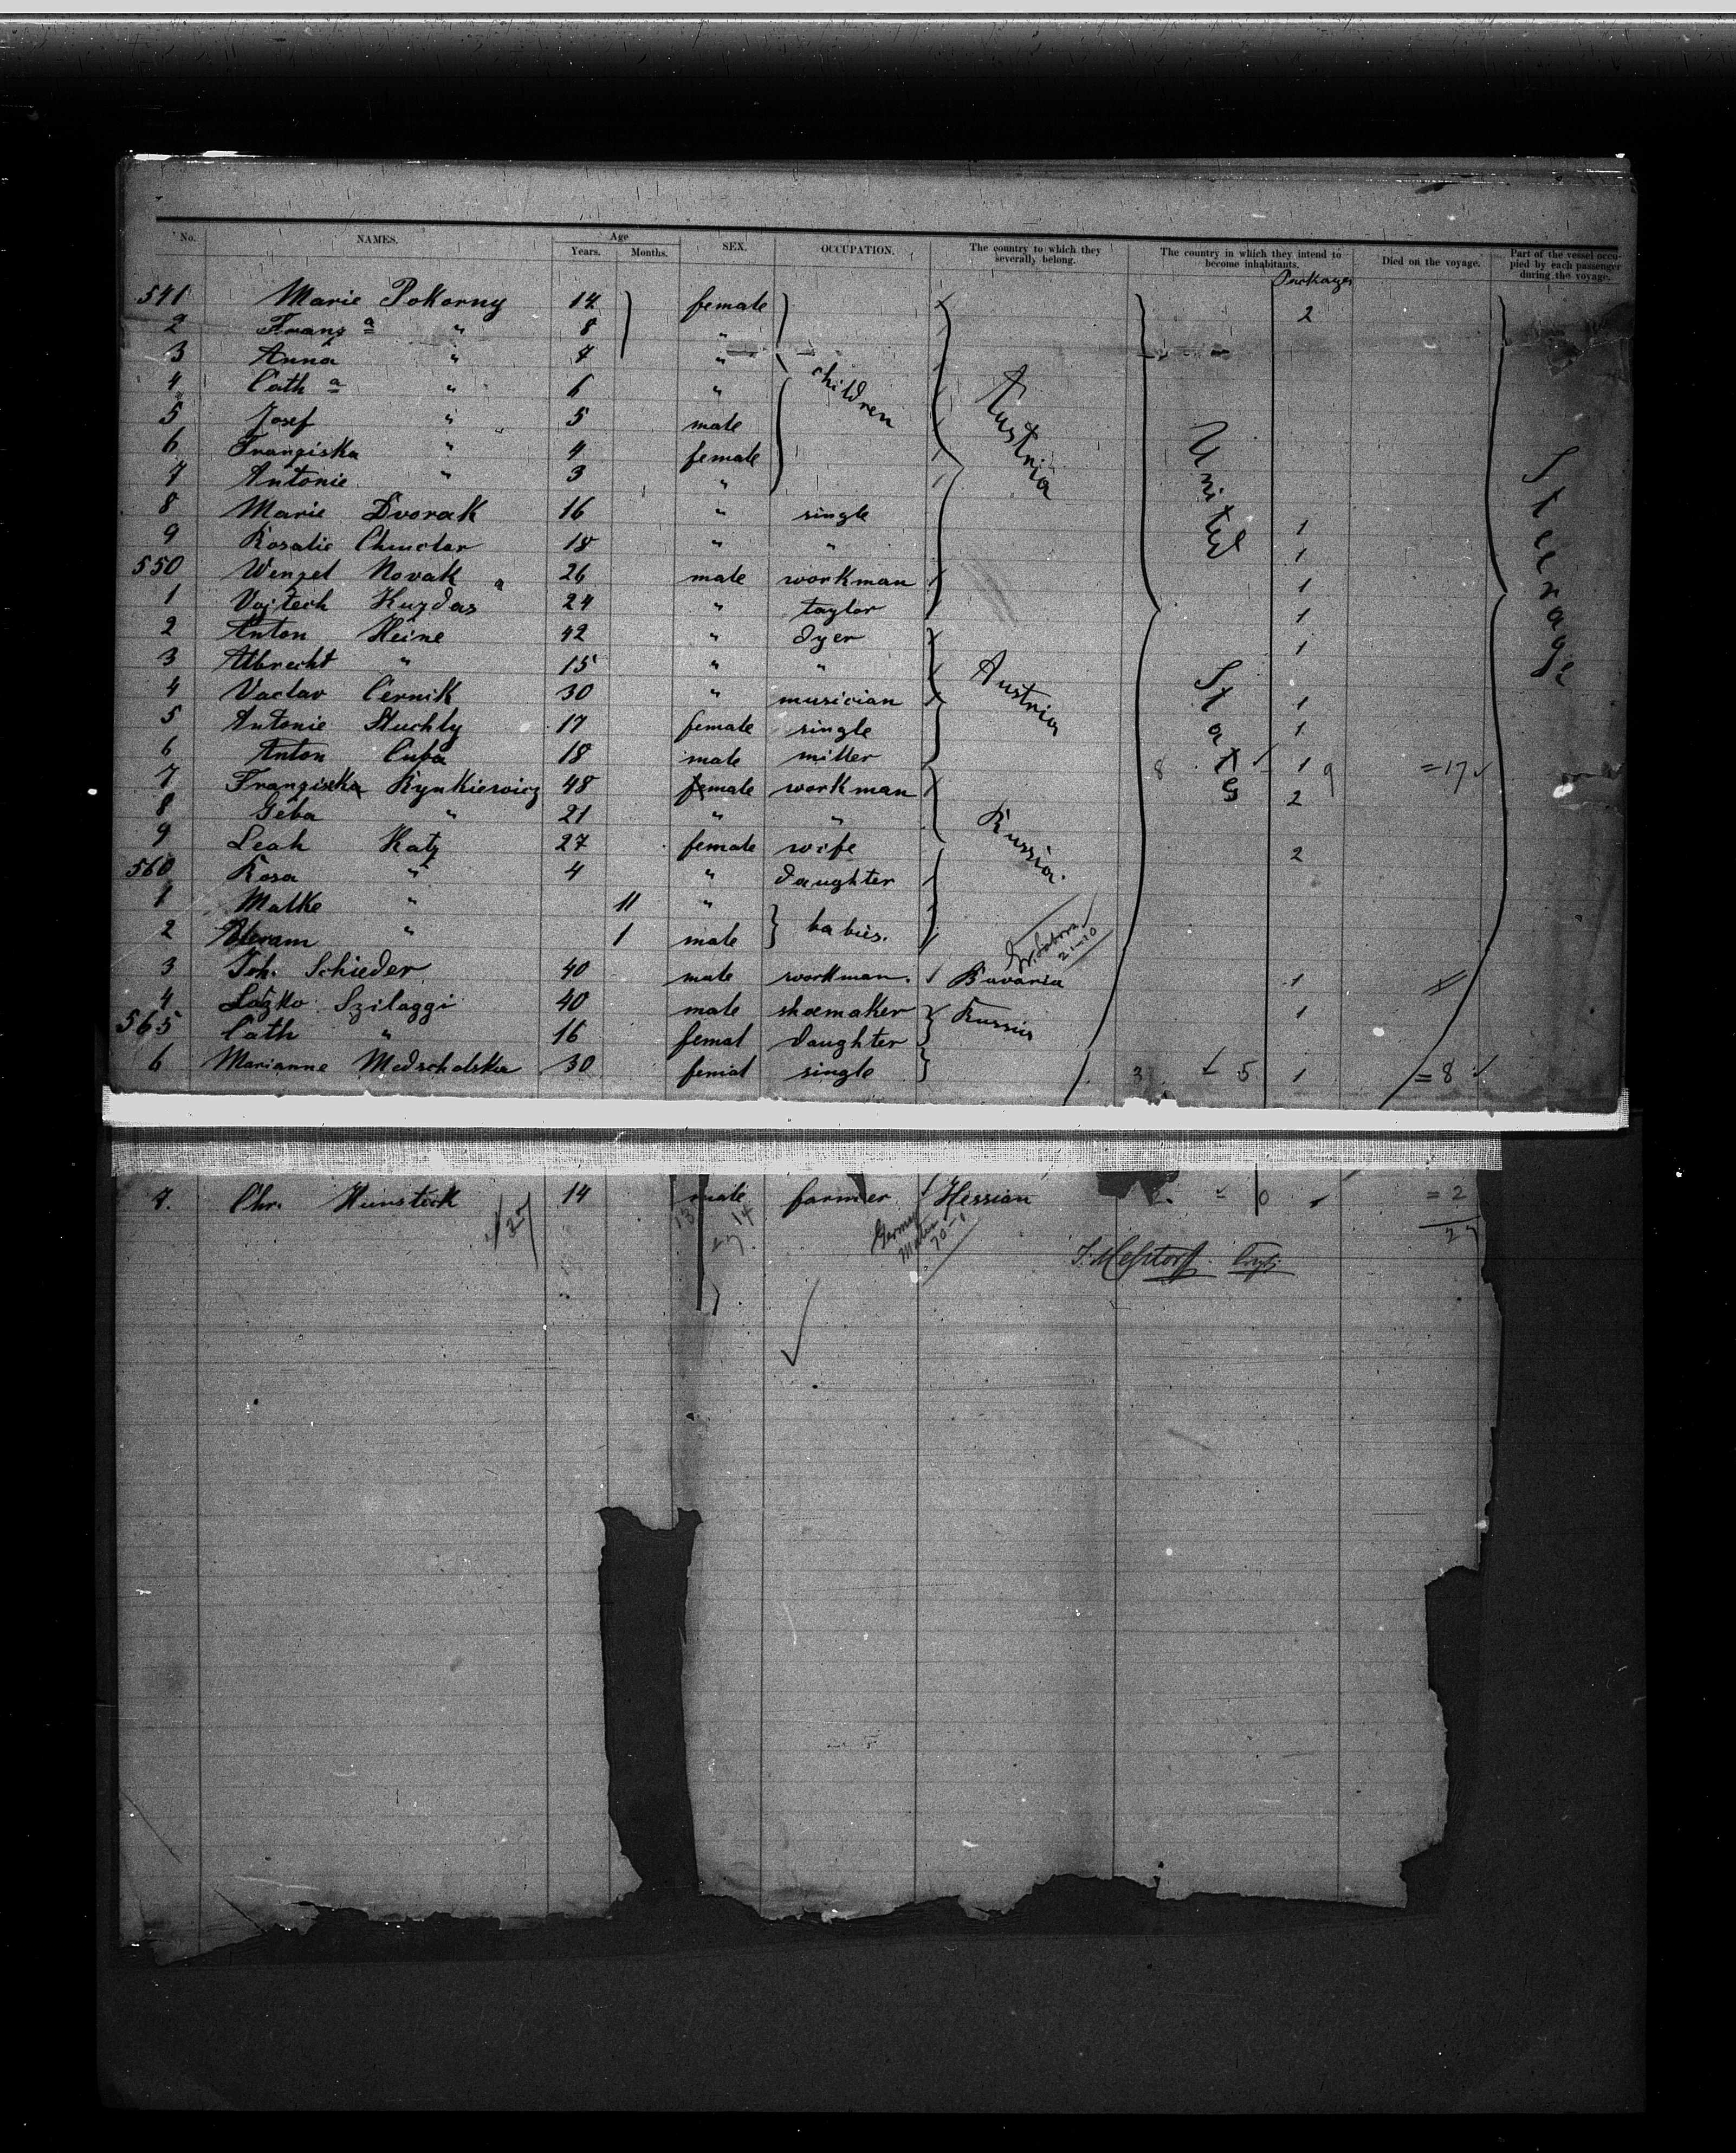 No. NAMES. Age Years. Months. SEX. OCCUPATION. The country to which they severally belong. The country in which they intend to become inhabitants. Died on the voyage. Part of the vessel occupied by each passenger during the voyage.
Packages
541 Marie Pokorny 14 female 2
2 Franz a " 8 "
3 Anna " 7 "
4 Cath a " 6 " children Austria
5 Josef " 5 male
6 Franziska " 4 female United Steerage
7 Antonie " 3 "
8 Marie Dvorak 16 " single 1
9 Rosalie 18 " " 1
550 Wenzel Novak 26 male workman 1
1 Vojtech Kuzdas 24 " taylor 1
2 Anton Heine 42 " dyer 1
3 Albrecht " 15 " " Austria
4 Vaclav Cernik 30 " musician States 1
5 Antonie Stuchly 17 female single 1
6 Anton Cuba 18 male miller 8 1 9 =17
7 Franziska Rynkiewicz 48 female workman 2
8 Geba " 21 " " Russia
9 Leah Katz 27 female wife 2
560 Rosa " 4 " daughter
1 Malke " 11 " babies.
2 Abram " 1 male
3 Joh. Schieder 40 male workman. Bavaria 1
4 Szilaggi 40 male shoemaker Russia 1
565 Cath " 16 femal daughter
6 Marianne Medschalska 30 femal single 3 5 1 =8
7. Chr. 14 male farmer Hessian 0 = 2
27 13 14 27